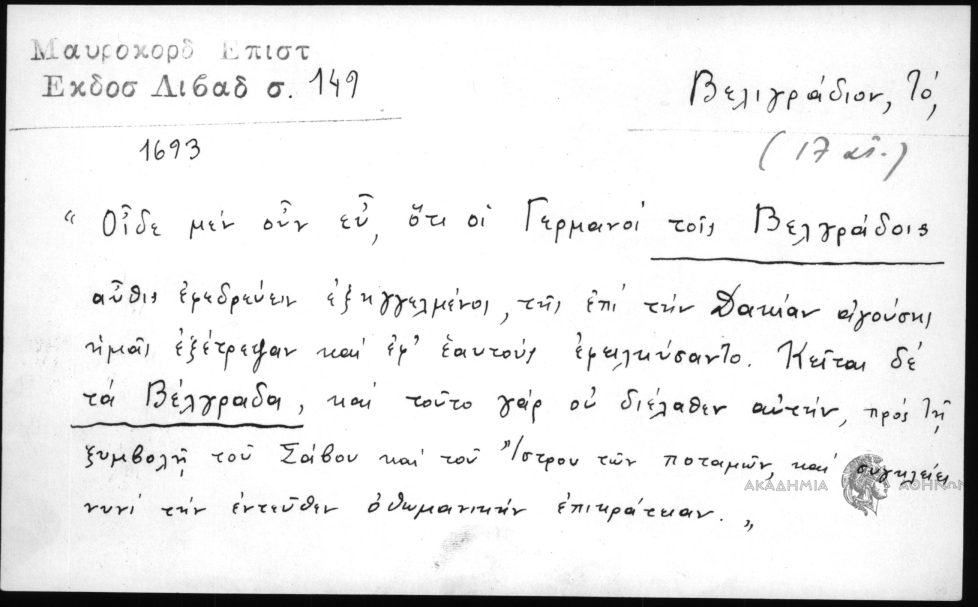 Μαυροκορδ Επιστ
Εκδοσ Λιβαδ σ. 149
Βελιγράδιον, τό,
1693
(17 αἰ.)
“ Οἶδε μέν οὖν εὖ, ὅτι οἱ Γερμανοί τοῖς Βελγράδοις
αὖθις ἐφεδρεύειν ἐξηγγελμένοι, τῆς ἐπί τήν Δακίαν ἀγούσης
ἡμᾶς ἐξέτρεψαν καί ἐφ' ἑαυτούς ἐφειλκύσαντο. Κεῖται δέ
τά Βέλγραδα, καί τοῦτο γάρ οὐ διέλαθεν αὐτήν, πρός τῇ
ξυμβολῇ τοῦ Σάβου καί τοῦ Ἴστρου τῶν ποταμῶν, καί συγκλείει
νυνί τήν ἐντεῦθεν ὀθωμανικήν ἐπικράτειαν. „
ΑΚΑΔΗΜΙΑ ΑΘΗΝΩΝ